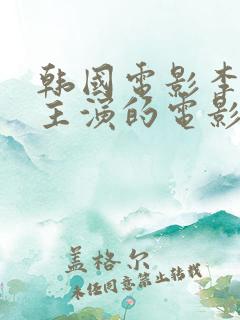 韩國電影李
主演的電影
盖格尔
未经同意禁止转载